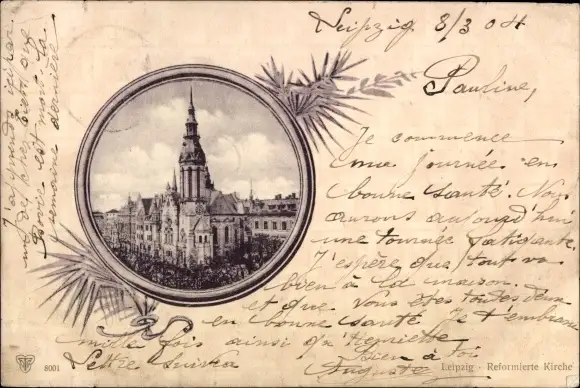 Leipzig 8/3 04
Pauline,
Je commence
une journée en
bonne santé Nous
aurons aujourd'hui
une tournée fatigante.
J'espère que tout va
bien à la maison.
et que vous êtes toutes deux
en bonne santé Je t'embrasse
mille fois ainsi qu'Henriette
Lettre suivra
Bien à toi
Auguste
J'apprends
est mort la
semaine dernière
8001
Leipzig - Reformierte Kirche